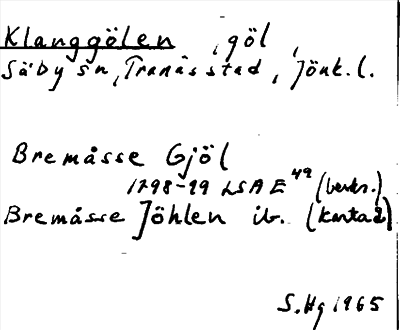 Klanggölen, göl,
Säby sn, Tranås stad, Jönk.l.
Bremåsse Gjöl
1798-99 LSA E 49 (beskr.)
Bremåsse Jöhlen ib. (karta 2)
S.Hg 1965